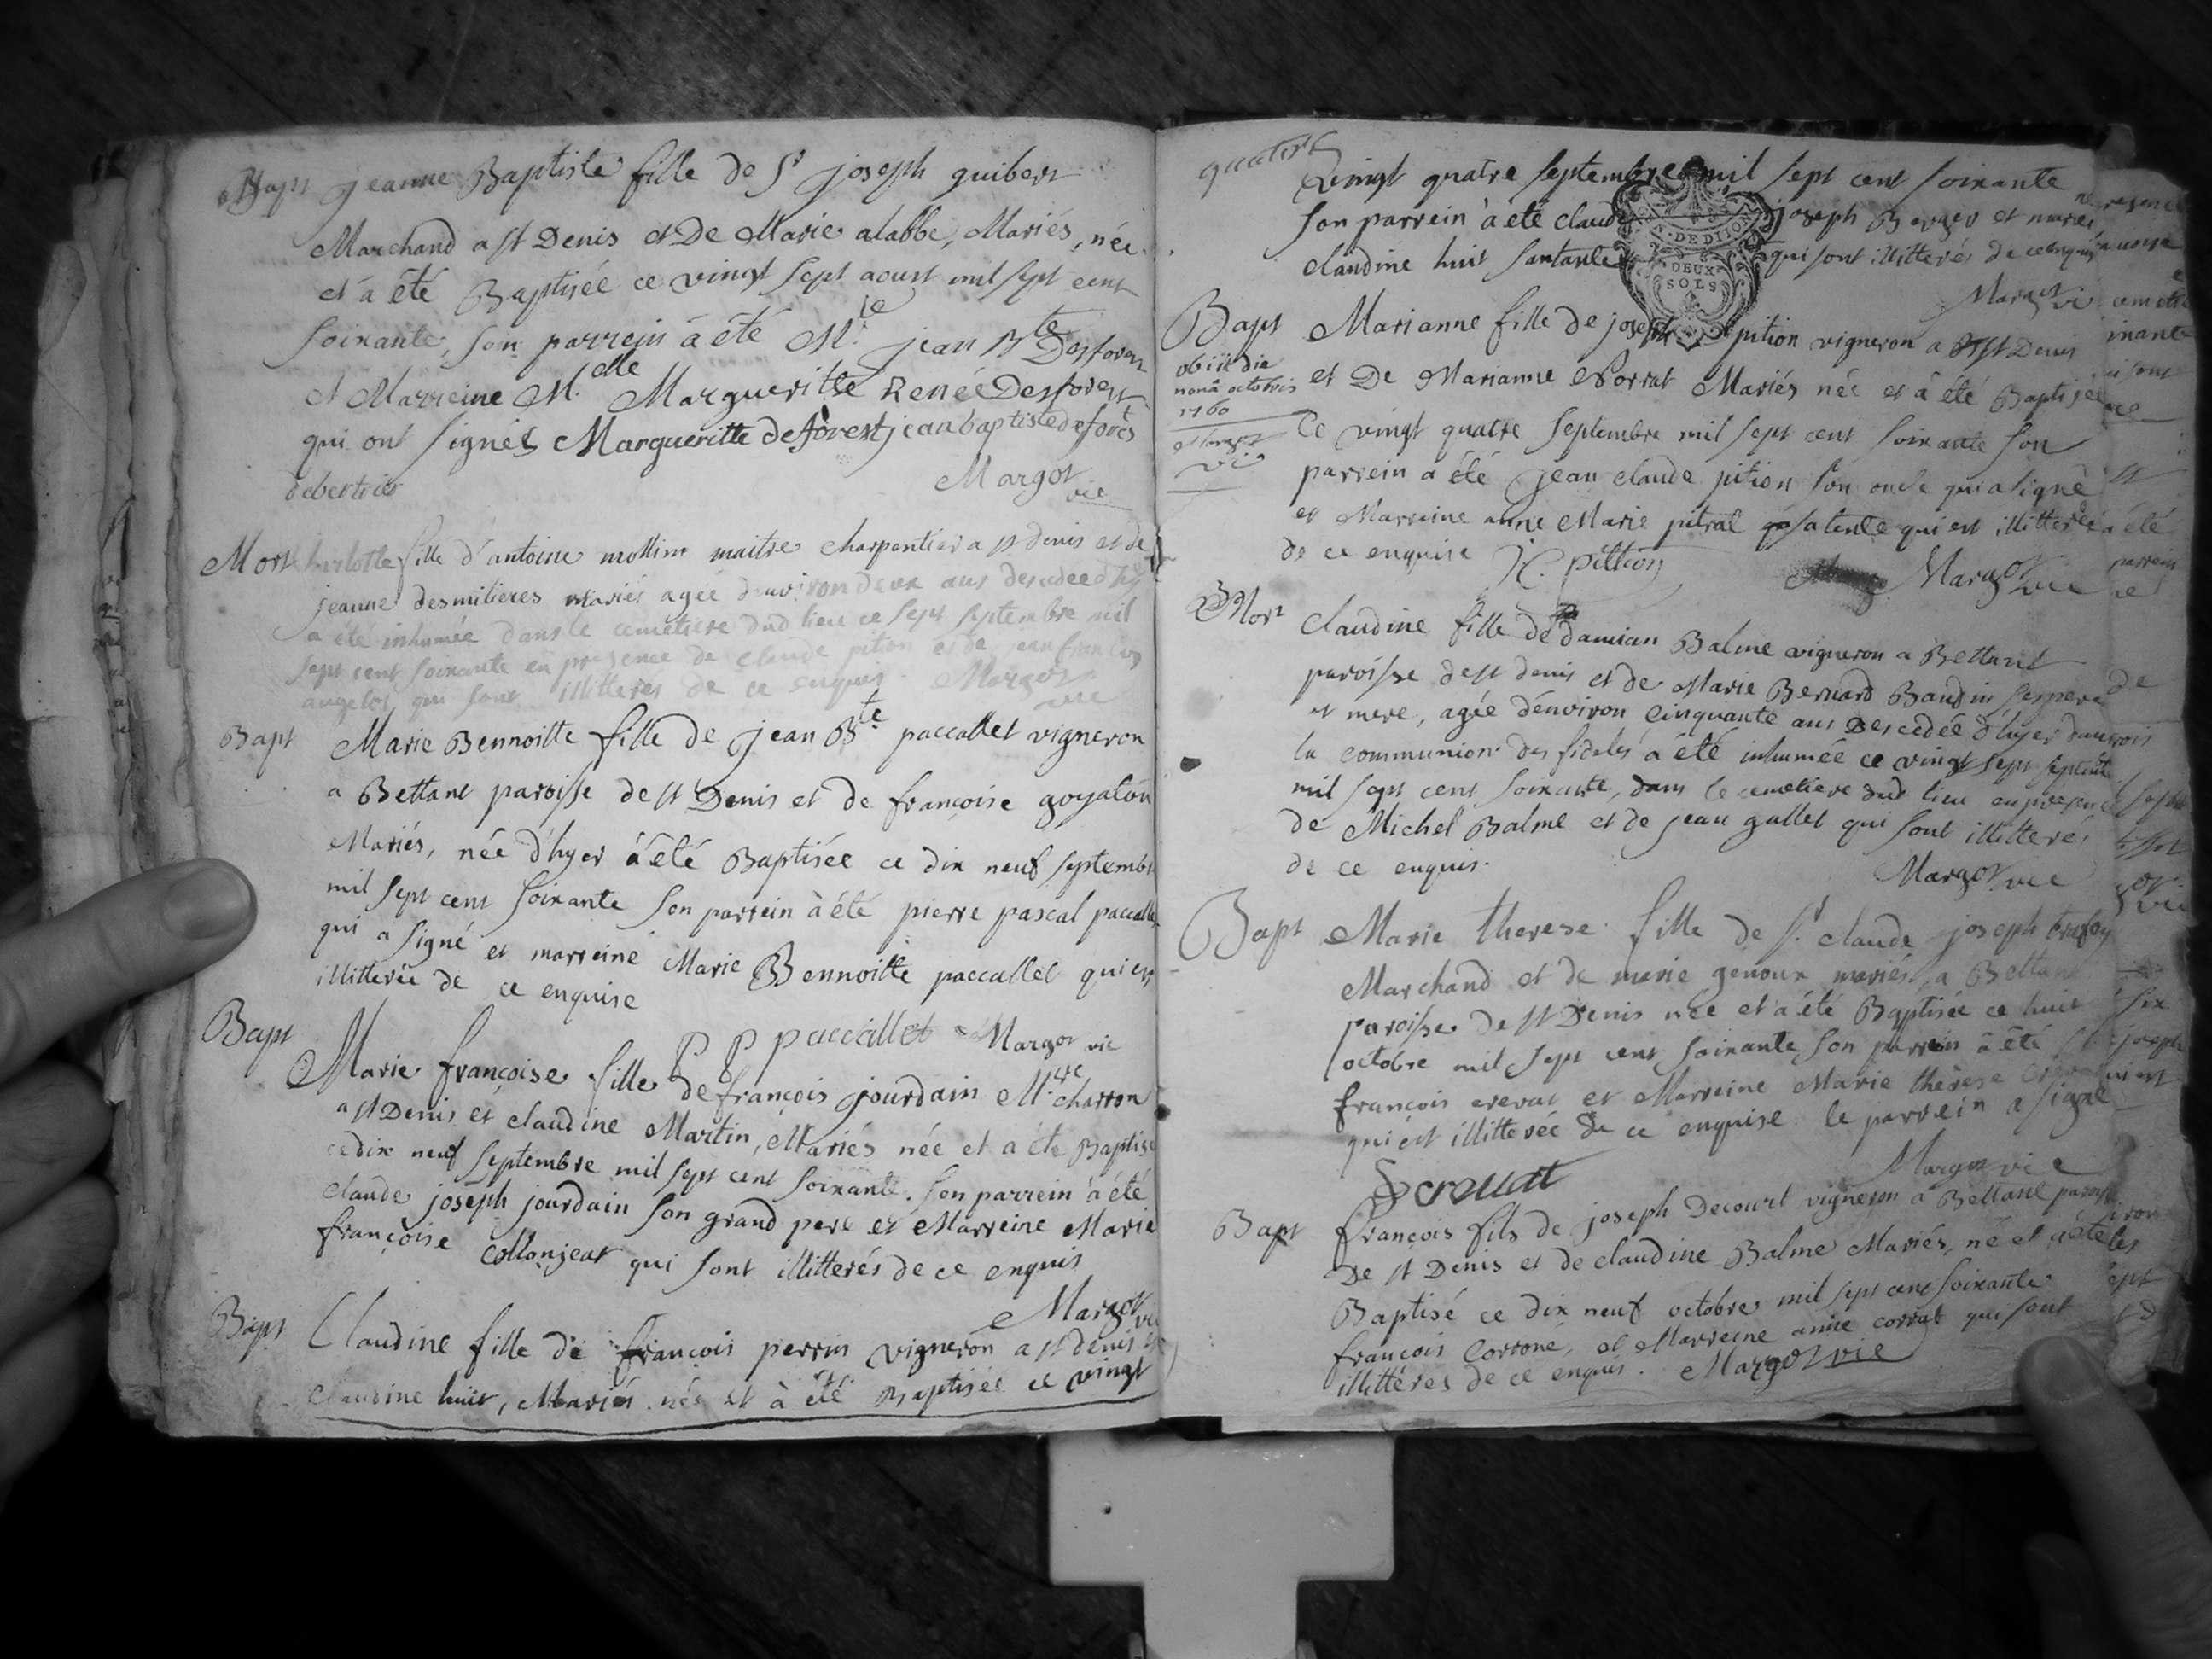 Bapt Jeanne Baptiste fille de Sr joseph guibert
Marchand a st Denis et De Marie alabbe, Mariés, née
et à été Baptisée ce vingt sept aoust mil sept cent
soixante, son parrein à été Mr. jean Bte Desforest
et Marreine M.elle Margueritte Renée Desforest
qui ont signés Margueritte deforest jean baptiste deforest
Margot
vic
Mort fille d'antoine mollim maitre charpentier a st denis et de
jeanne desmilieres mariés agée d'environ deux ans descedee d'hyer
a été inhumée dans le cemetiere dud lieu ce sept septembre mil
sept cent soixante en presence de claude pition et de jean françois
angelot qui sont illitteres de ce enquis. Margot
vic
Bapt Marie Bennoitte fille de jean Bte paccallet vigneron
a Bettant paroisse de st Denis et de françoise goyaton
Mariés, née d'hyer à été Baptisée ce dix neuf septembre
mil sept cent soixante son parrein à été pierre pascal paccallet
qui a signé et marreine Marie Bennoitte paccallet qui est
illitterée de ce enquise
P P paccallet Margot vic
Bapt Marie françoise fille de françois jourdain M.tre charron
a st Denis et claudine Martin, Mariés née et a été Baptisée
ce dix neuf septembre mil sept cent soixante. son parrein à été
claude joseph jourdain son grand pere et Marreine Marie
françoise collonjeat qui sont illitterés de ce enquis
Margot vic
Bapt Claudine fille de françois perrin vigneron a st denis et
claudine huit, Mariés née et à été Baptisée ce vingt
quatre
vingt quatre septembre mil sept cent soixante
son parrein à été claude joseph Berger et
claudine huit sa tante qui sont illitterés de ce enquis
Margot vic
DE DIJON
DEUX
SOLS
Bapt Marianne fille de joseph pition vigneron a st Denis
obiit die
nonâ octobris
1760
Margot
vic
et De Marianne Porrat Mariés née et à été Baptisée
Ce vingt quatre septembre mil sept cent soixante son
parrein a été jean claude pition son oncle qui a signé
et Marreine anne Marie pitral sa tente qui est illitterée
de ce enquise J C. pittion Margot vic
Mort Claudine fille de damian Balme vigneron a Bettant
paroisse de st denis et de Marie Bernard Baudin, ses pere
et mere, agée d'environ Cinquante ans Descedée d'hyer dans
la communion des fideles a été inhumée ce vingt sept septembre
mil sept cent soixante, dans le cemetiere dud lieu en presence
de Michel Balme et de jean gallet qui sont illitterés
de ce enquis.
Margot vic
Bapt Marie therese fille de Sr. claude joseph
Marchand et de marie genoux mariés, a Bettant
paroisse de st Denis née et a été Baptisée ce huit
octobre mil sept cent soixante son parrein à été
françois crevat et Marreine Marie thérèse
qui est illitterée de ce enquise. le parrein a signé
Margot vic
Bapt françois fils de joseph Decourt vigneron a Bettant paroisse
De st Denis et de claudine Balme Mariés, né et a été
Baptisé ce dix neuf octobre mil sept cent soixante
françois Cortone, et Marreine anne corrat qui sont
illittérés de ce enquis. Margot vic